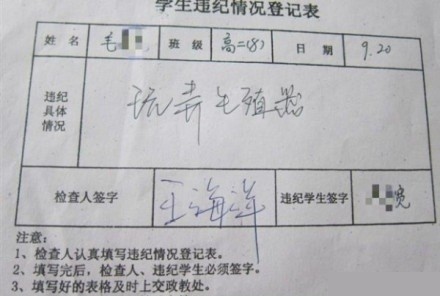 学生违纪情况登记表
姓名 毛 班级 高二(8) 日期 9.20
违纪具体情况 玩弄生殖器
检查人签字 王海洋 违纪学生签字 宽
注意：
1、检查人认真填写违纪情况登记表。
2、填写完后，检查人、违纪学生必须签字。
3、填写好的表格及时上交政教处。